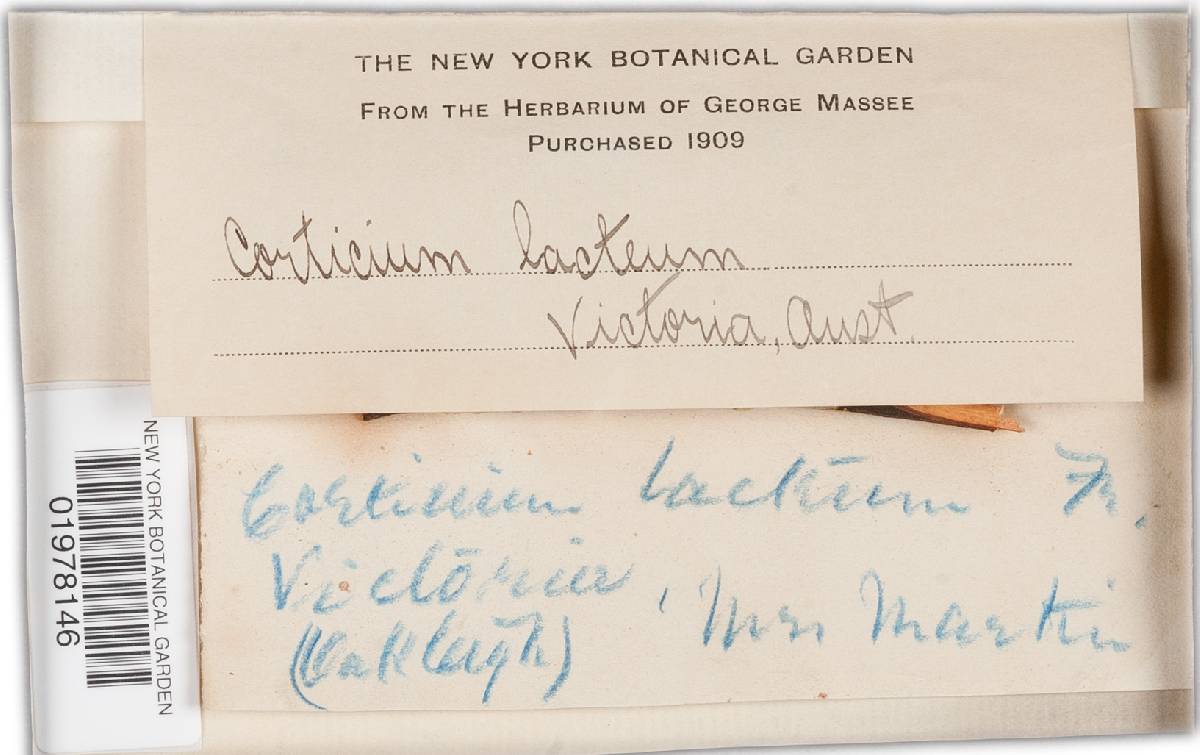 THE NEW YORK BOTANICAL GARDEN
FROM THE HERBARIUM OF GEORGE MASSEE
PURCHASED 1909
Corticium lacteum
Victoria, Aust.
NEW YORK BOTANICAL GARDEN
01978146
Corticium lacteum Fr.
Victoria, Mrs Martin
(Oakleigh)